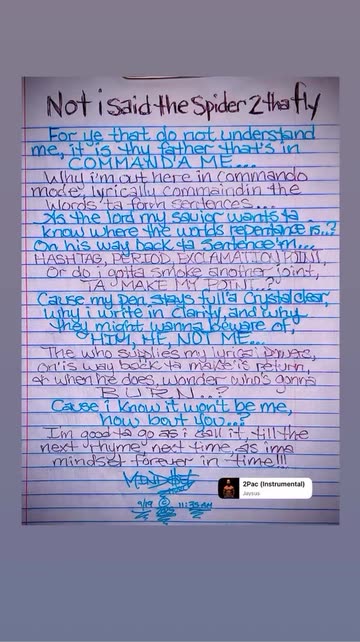 Not i said the Spider 2 tha fly
For ye that do not understand
me, it is thy father that's in
COMMAND'A ME...
Why i'm out here in commando
mode, lyrically commaindin the
Words ta form sentences...
As the lord my savior wants ta
know where the worlds repentance is..?
On his way back ta Sentence'm...
HASHTAG, PERIOD, EXCLAMATION POINT,
Or do i gotta smoke another joint,
TA MAKE MY POINT..?
Cause my pen stays full'a Crystal clear,
why i write in Clarity, and why
they might wanna beware of,
HIM, HE, NOT ME...
The who supplies my lyrical powers,
on is way back ta make is return,
& when he does, wonder who's gonna
B U R N..?
Cause i know it won't be me,
how bout you...?
I'm good ta go as i call it, till the
next rhyme, next time, as ima
mindset forever in time!!!
MINDSET
9/19 © 11:35AM
2Pac (Instrumental)
Jaysus